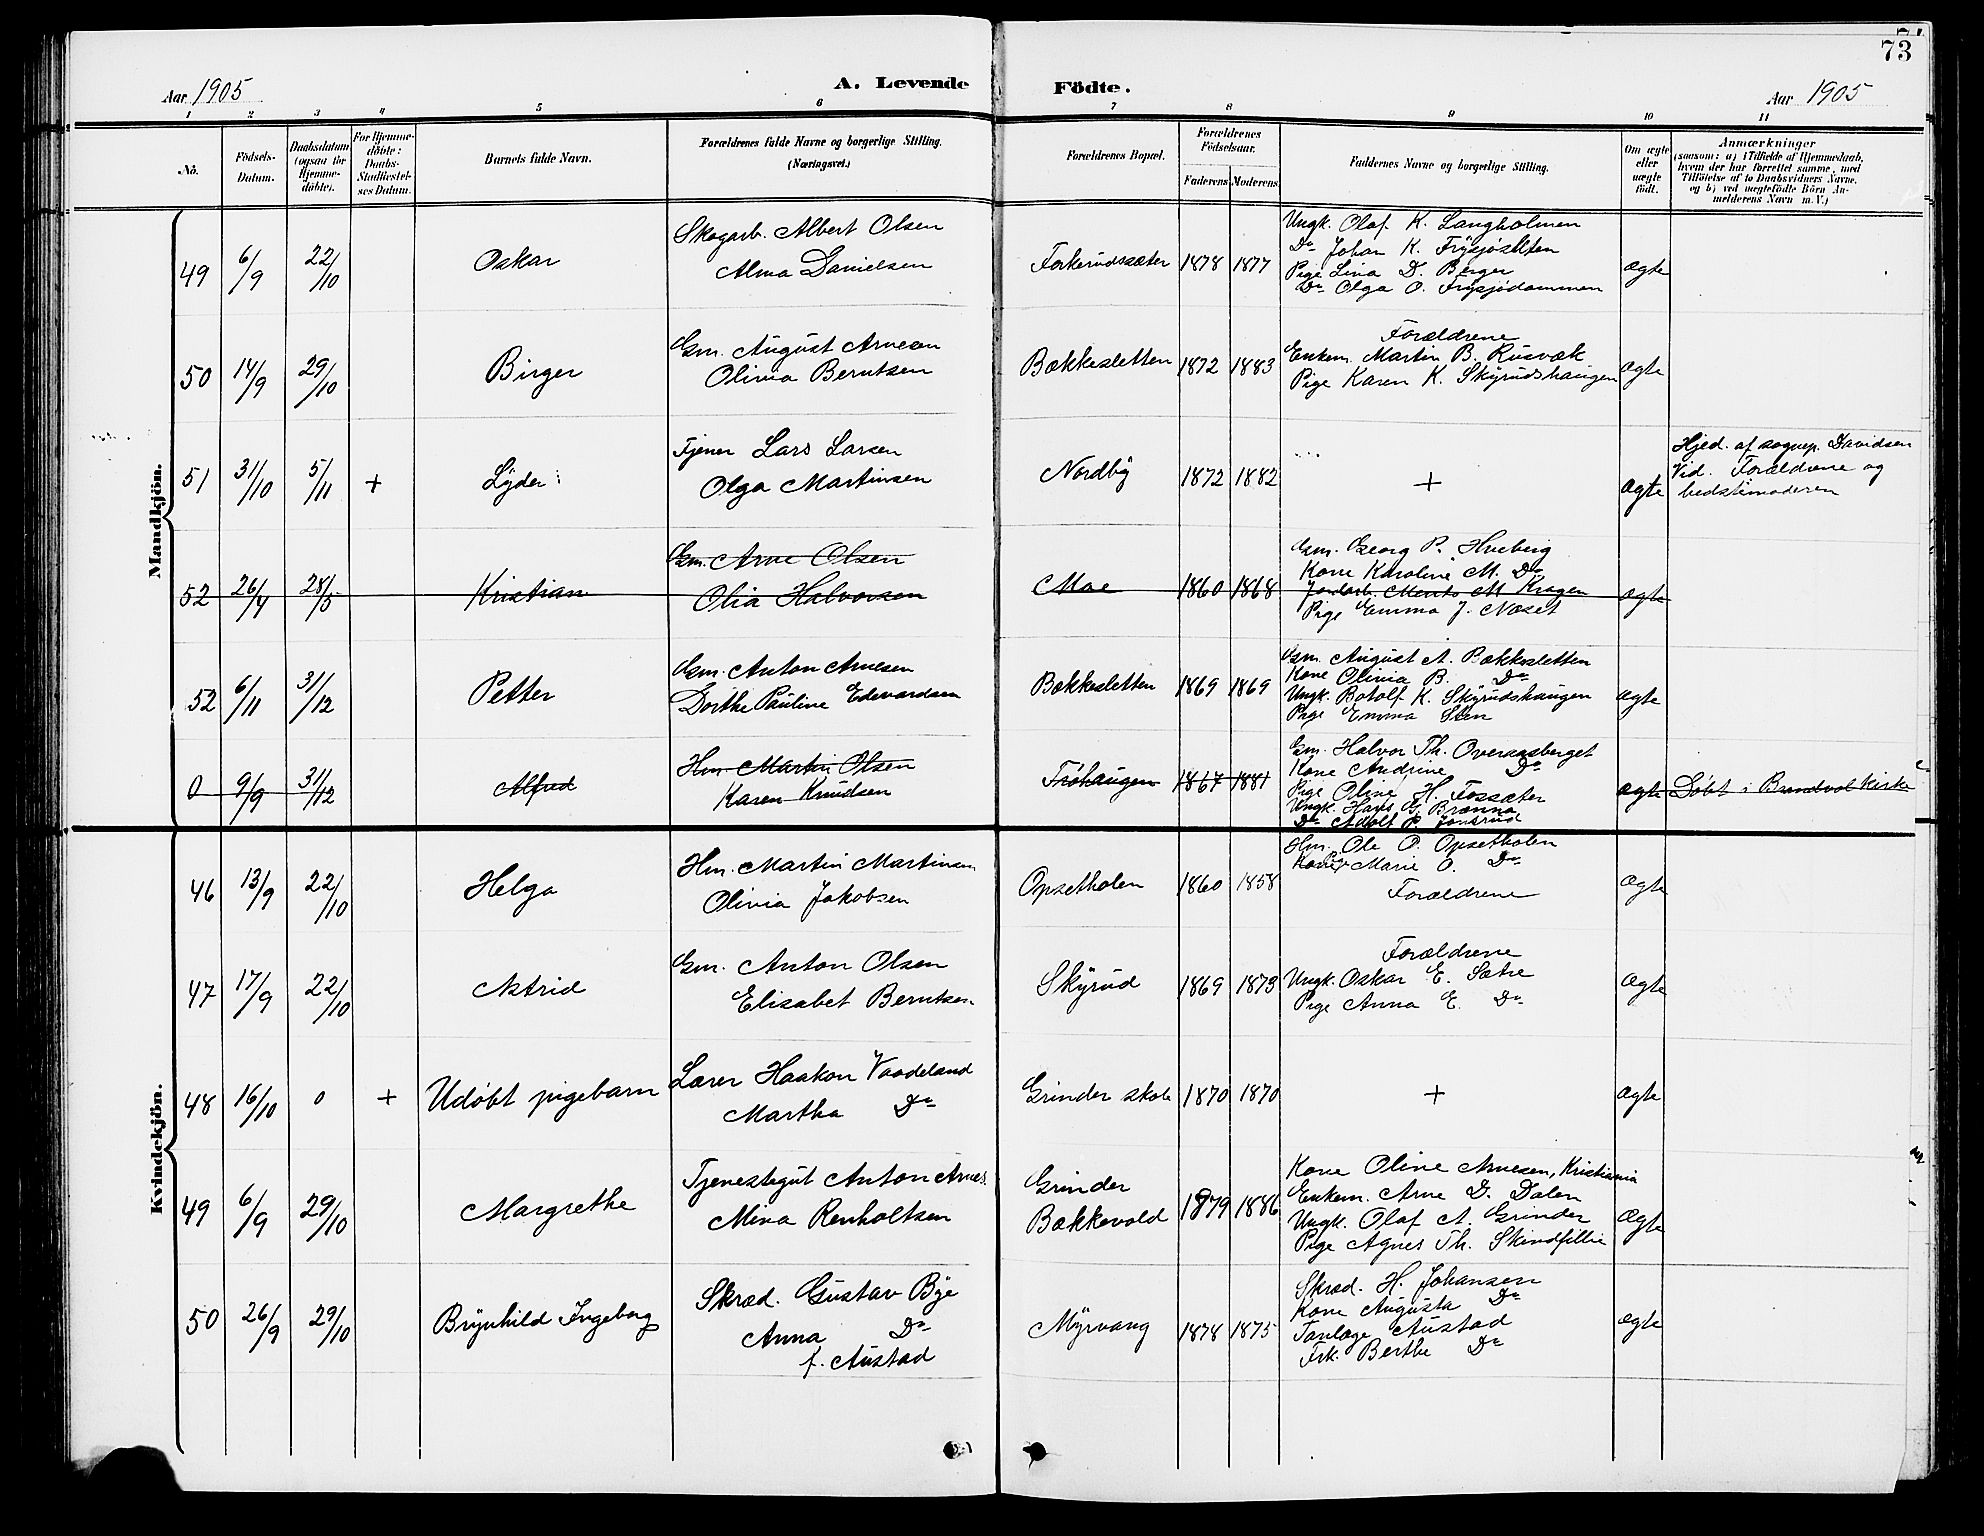 73
Aar 1905
A. Levende Födte.
Aar 1905
1 2 3 4 5 6 7 8 9 10 11
No.
Födsels-Datum.
Daabsdatum (ogsaa for Hjemme-døbte).
For Hjemme-døbte: Daabs-Stadfæstel-ses Datum.
Barnets fulde Navn.
Forældrenes fulde Navne og borgerlige Stilling. (Næringsvei.)
Forældrenes Bopæl.
Forældrenes Födselsaar.
Faderens Moderens
Faddernes Navne og borgerlige Stilling.
Om ægte eller uægte födt.
Anmærkninger
(saasom: a) i Tilfælde af Hjemmedaab,
hvem der har forrettet samme, med
Tilföielse af to Daabsvidners Navne,
og b) ved uægtefödte Börn An-
melderens Navn m. V.)
Mandkjön.
49 6/9 22/10 Oskar
Skogarb. Albert Olsen
Alma Danielsen
Forkerudsæter 1878 1877
Ungk. Olaf K. Langholmen
Do Johan K. Frysjøsletten
Pige Lina D. Berger
Do Olga O. Frysjödammen
ægte
50 14/9 29/10 Birger
Gm. August Arnesen
Olivia Berntsen
Bækkesletten 1872 1883
Forældrene
Enkem. Martin B. Rusvæk
Pige Karen K. Skyrudshaugen
ægte
51 31/10 5/11 + Lyder
Tjener Lars Larsen
Olga Martinsen
Nordby 1872 1882
+
ægte
Hjed. af sognep. Davidsen
Vid. Forældrene og
bedstemoderen
52 26/4 28/5 Kristian
Gm. Arne Olsen
Olia Halvorsen
Moe 1860 1868
Gm. Georg P. Hveberg
Kone Karoline M. Do
Jordarb. M. Kragen
Pige Emma J. Næset
ægte
52 6/11 31/12 Petter
Gm. Anton Arnesen
Dorthe Pauline Edvardsen
Bækkesletten 1869 1869
Gm. August A. Bækkesletten
Kone Olivia B. Do
Ungk. Botolf K. Skyrudshaugen
Pige Emma Sten
ægte
0 9/9 31/12 Alfred
Hm. Martin Olsen
Karen Knudsen
Trøhaugen 1867 1881
Gm. Halvor Th. Overaasberget
Kone Andrine Do
Pige Oline H. Fossæter
Ungk. Hans G. Brænna
Do Adolf P. Jonsrud
ægte
Døbt i Brandvol Kirke
Kvindekjön.
46 13/9 22/10 Helga
Hm. Martin Martinsen
Olivia Jakobsen
Opsetholen 1860 1858
Hm. Ole O. Opsetholen
Pige Marie O. Do
Forældrene
ægte
47 17/9 22/10 Astrid
Gm. Anton Olsen
Elisabet Berntsen
Skyrud 1869 1873
Forældrene
Ungk. Oskar E. Sætre
Pige Anna E. Do
ægte
48 16/10 0 + Udöbt pigebarn
Lærer Haakon Vaadeland
Martha Do
Grinder skole 1870 1870
+
ægte
49 6/9 29/10 Margrethe
Tjenestegut Anton Arnes.
Mina Renholtsen
Grinder
Bækkevold
1879 1886
Kone Oline Arnesen, Kristiania
Enkem. Arne D. Dalen
Ungk. Olaf A. Grinder
Pige Agnes Th. Skindfillie
ægte
50 26/9 29/10 Brynhild Ingeborg
Skræd. Gustav Bye
Anna Do
f. Austad
Myrvang 1878 1875
Skræd. H. Johansen
Kone Augusta Do
Tanlæge Austad
Frk. Berthe Do
ægte